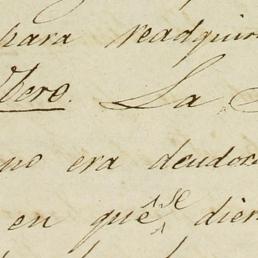 para readquiri
Mero. La
no era deudora
en que se dier